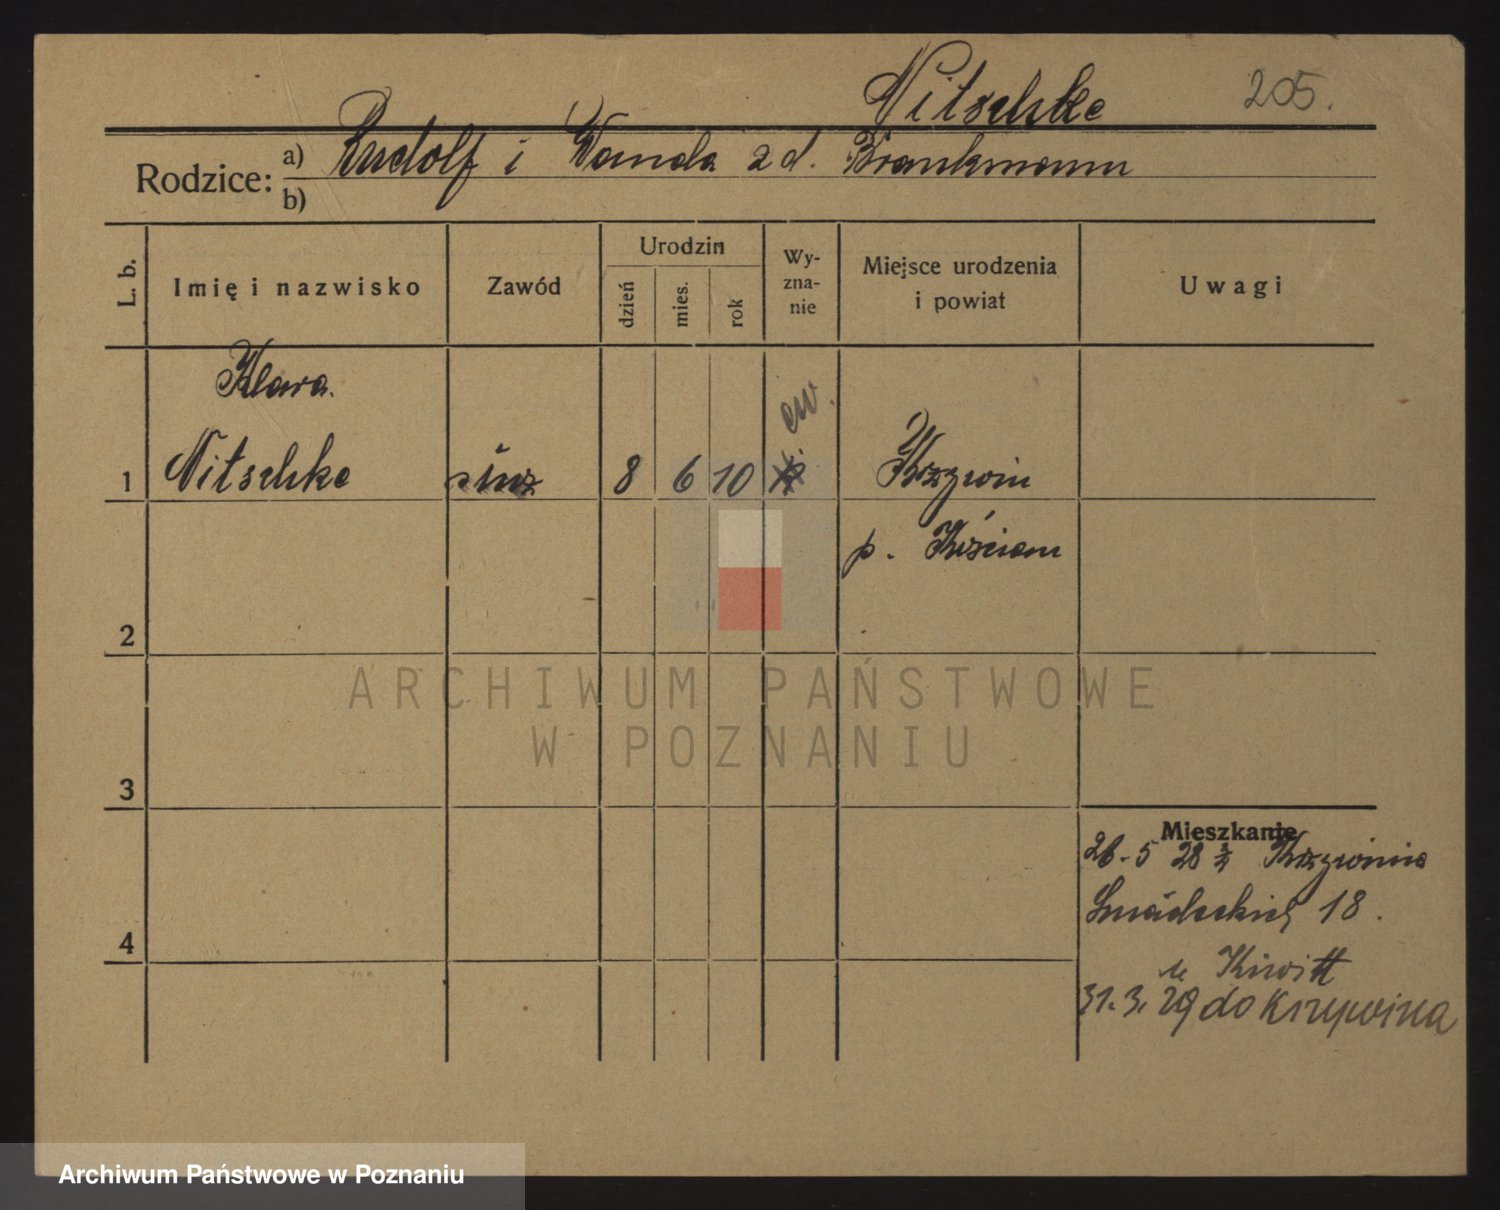 Nitschke 205.
Rodzice:
a) Rudolf i Wanda zd. Brankmann
b)
L. b.
Imię i nazwisko
Zawód
Urodzin
dzień
mies.
rok
Wy-
zna-
nie
Miejsce urodzenia
i powiat
Uwagi
Klara.
ew.
1 Nitschke służ 8 6 10 Krzywin
p. Kościan
2
3
4
Mieszkanie
26-5 28 z Krzywinia
Śniadeckich 18.
u Kiwitt
31.3.29 do Krzywina
ARCHIWUM PAŃSTWOWE
W POZNANIU
Archiwum Państwowe w Poznaniu